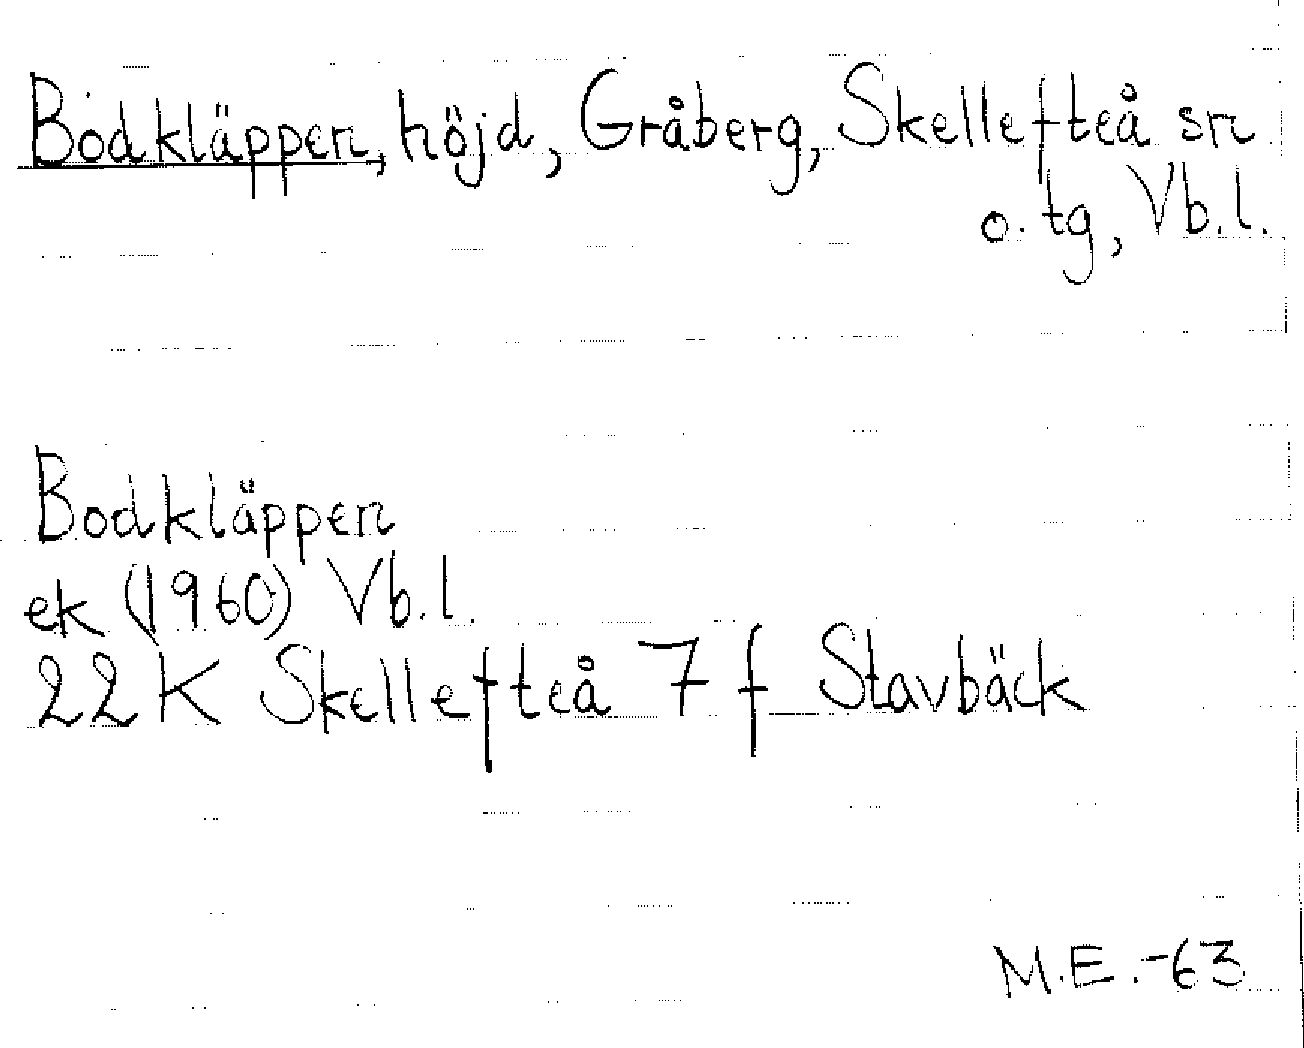 Bodkläppen, höjd, Gråberg, Skellefteå sn
o. tg, Vb.l.
Bodkläppen
ek (1960) Vb.l.
22K Skellefteå 7 f Stavbäck
M.E.-63